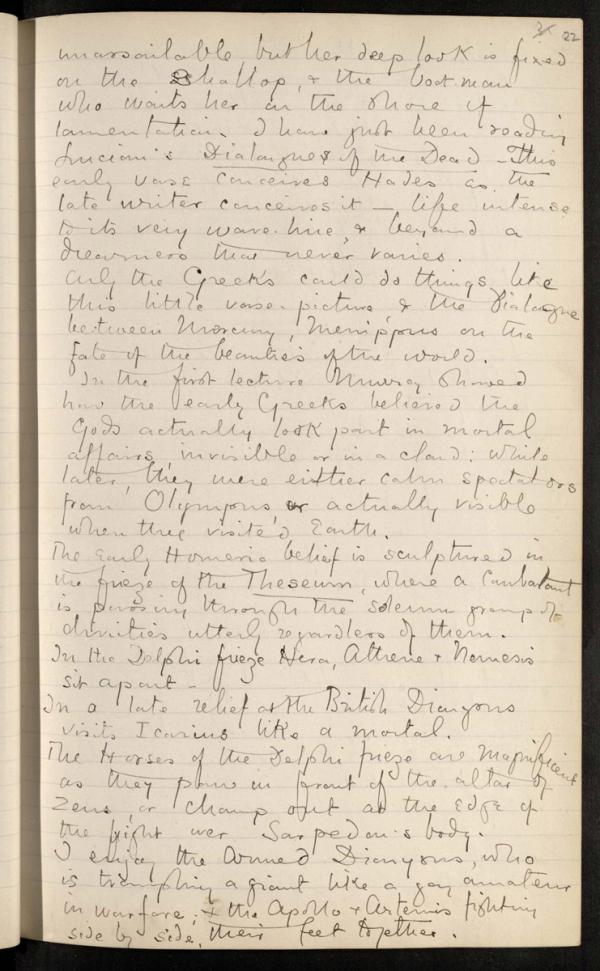 22
unassailable but her deep look is fixed
on the Shallop, & the boat-man
who waits her on the shore of
lamentation. I have just been reading
Lucian's Dialogues of the Dead – This
early vase conceives Hades as the
late writer conceives it – life intense
to its very wave-line, & beyond a
dreariness that never varies.
Only the Greeks could do things like
this little vase-picture, & the Dialogue
between Mercury, Menippus on the
fate of the beauties of the world.
In the first lecture Murray showed
how the early Greeks believed the
Gods actually took part in mortal
affairs, invisible or in a cloud: while
later, they were either calm spectators
from Olympus, or actually visible
when they visited Earth.
The Early Homeric belief is sculptured in
the frieze of the Theseum, where a Combatant
is passing through the solemn group of
divinities utterly regardless of them.
In the Delphi frieze Hera, Athene & Nemesis
sit apart –
In a late relief at the British Dionysus
visits Icarius like a mortal.
The Horses of the Delphi frieze are magnificent
as they paw in front of the altar of
Zeus, or champ out at the edge of
the fight over Sarpedon's body.
I enjoy the armed Dionysus, who
is trampling a giant like a gay amateur
in warfare; & the Apollo & Artemis fighting
side by side, their feet together.